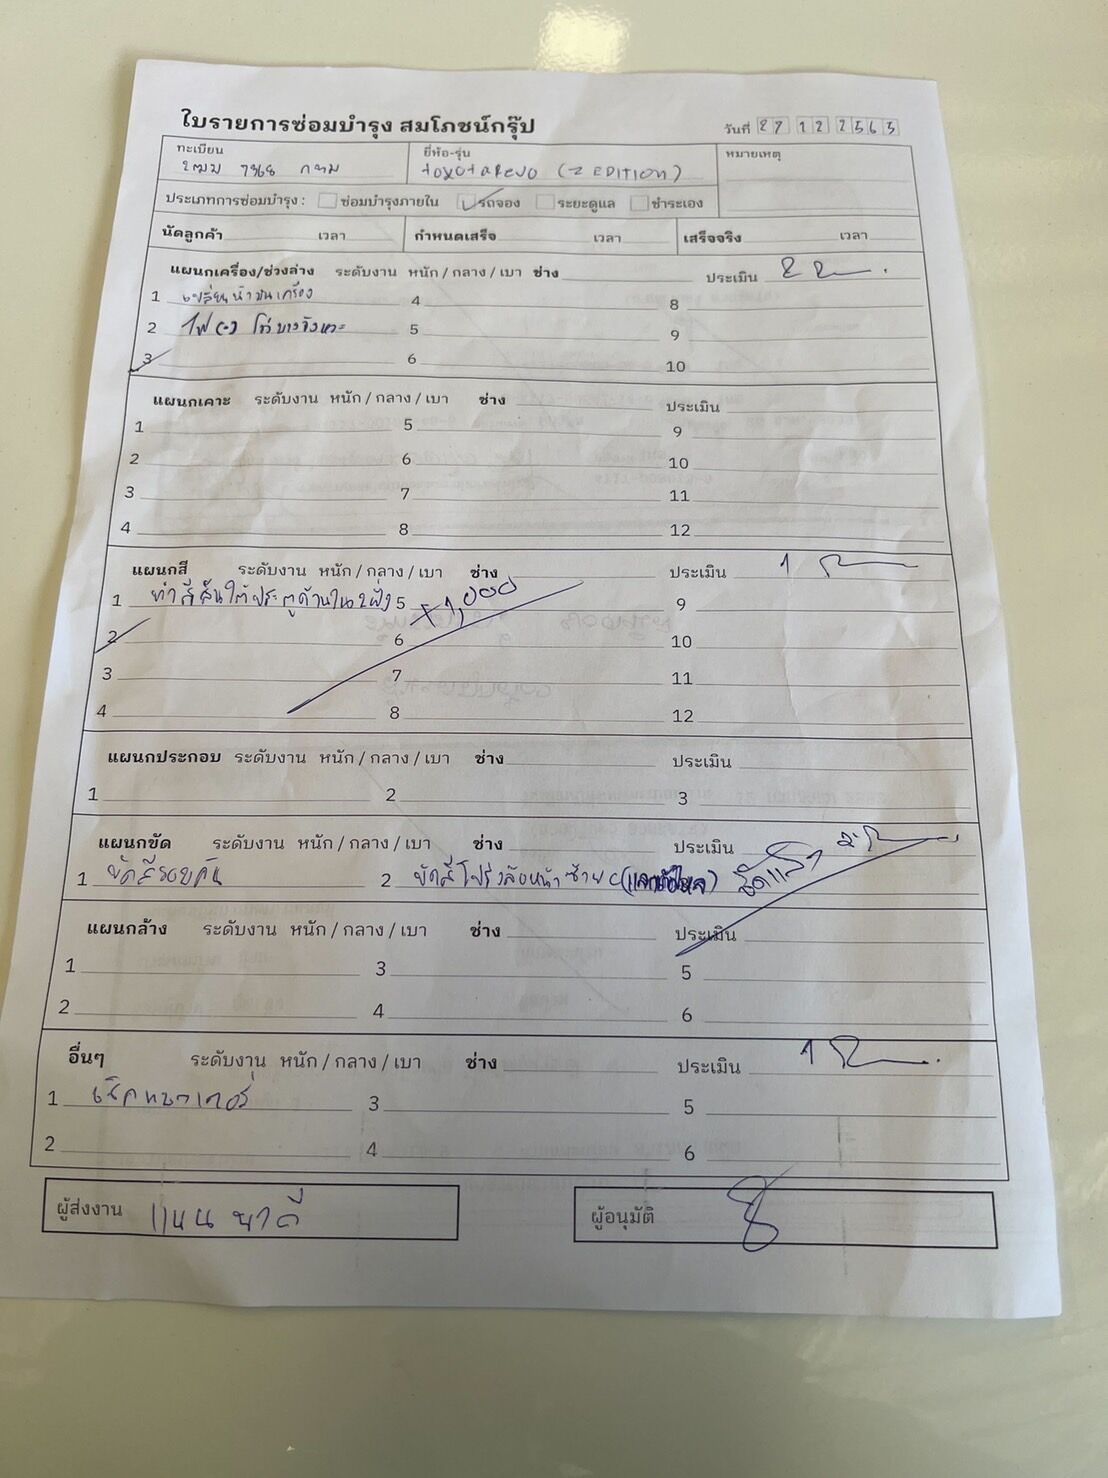 ใบรายการซ่อมบำรุง สมโภชน์กรุ๊ป
วันที่ 27 12 2563
ทะเบียน 2ฒม 7368 กทม
ยี่ห้อ-รุ่น toyota Revo (Z EDITION)
หมายเหตุ
ประเภทการซ่อมบำรุง : ซ่อมบำรุงภายใน รถจอง ระยะดูแล ชำระเอง
นัดลูกค้า เวลา กำหนดเสร็จ เวลา เสร็จจริง เวลา
แผนกเครื่อง/ช่วงล่าง ระดับงาน หนัก / กลาง / เบา ช่าง ประเมิน 2
1 เปลี่ยนน้ำมันเครื่อง 4 8
2 ไฟ (-) โชว์บางจังหวะ 5 9
3 6 10
แผนกเคาะ ระดับงาน หนัก / กลาง / เบา ช่าง ประเมิน
1 5 9
2 6 10
3 7 11
4 8 12
แผนกสี ระดับงาน หนัก / กลาง / เบา ช่าง ประเมิน 1
1 ทำสีสันใต้ประตูด้านใน 2 ฝั่ง 5 x 1,000 9
2 6 10
3 7 11
4 8 12
แผนกประกอบ ระดับงาน หนัก / กลาง / เบา ช่าง ประเมิน
1 2 3
แผนกขัด ระดับงาน หนัก / กลาง / เบา ช่าง ประเมิน
1 ขัดสีรอบคัน 2 ขัดสีโป่งล้อหน้าซ้าย
แผนกล้าง ระดับงาน หนัก / กลาง / เบา ช่าง ประเมิน
1 3 5
2 4 6
อื่นๆ ระดับงาน หนัก / กลาง / เบา ช่าง ประเมิน 1
1 3 5
2 4 6
ผู้ส่งงาน
ผู้อนุมัติ